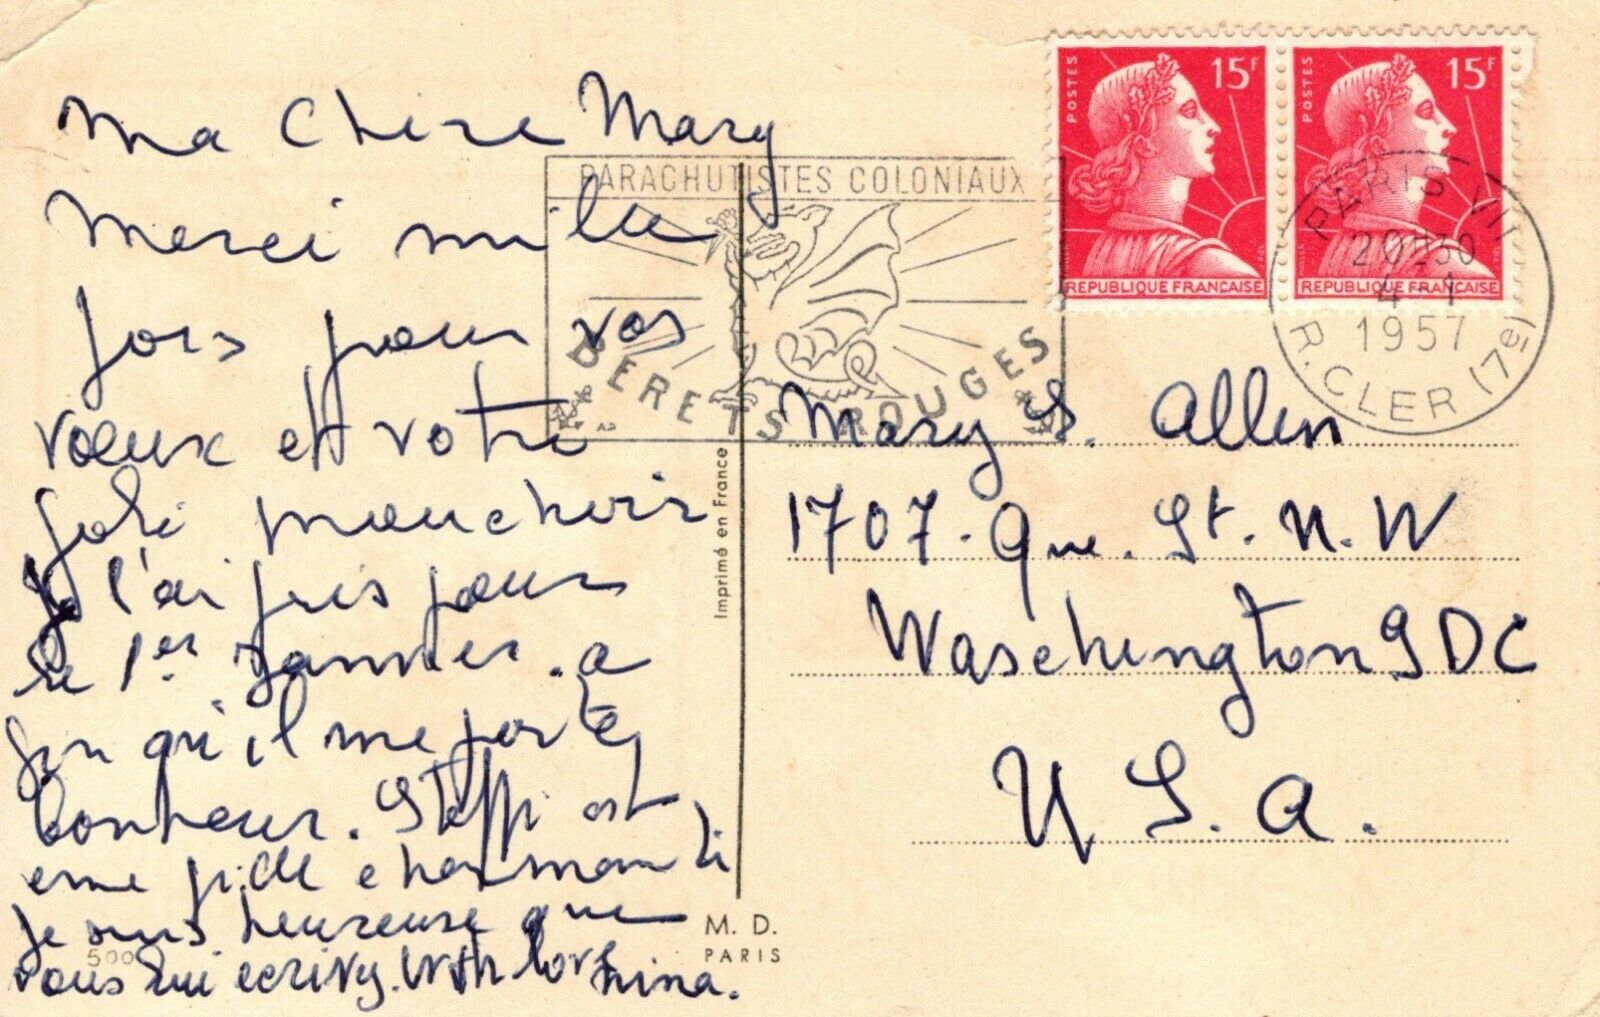 Ma Chere Mary
Merci mille
fois pour vos
voeux et votre
joli mouchoir
Je l'ai pris pour
le 1er Janvier. a
fin qu'il me porte
bonheur. Steffi est
une fille charmante
Je suis heureuse que
vous lui ecrivez. With love
Nina.
PARACHUTISTES COLONIAUX
BERETS ROUGES
Imprimé en France
M. D.
PARIS
500
POSTES 15F
REPUBLIQUE FRANÇAISE
POSTES 15F
REPUBLIQUE FRANÇAISE
PARIS VII
20H30
4-1
1957
R. CLER (7e)
Mary S. Allen
1707. Que. St. N. W
Waschington 9 DC
U. S. A.